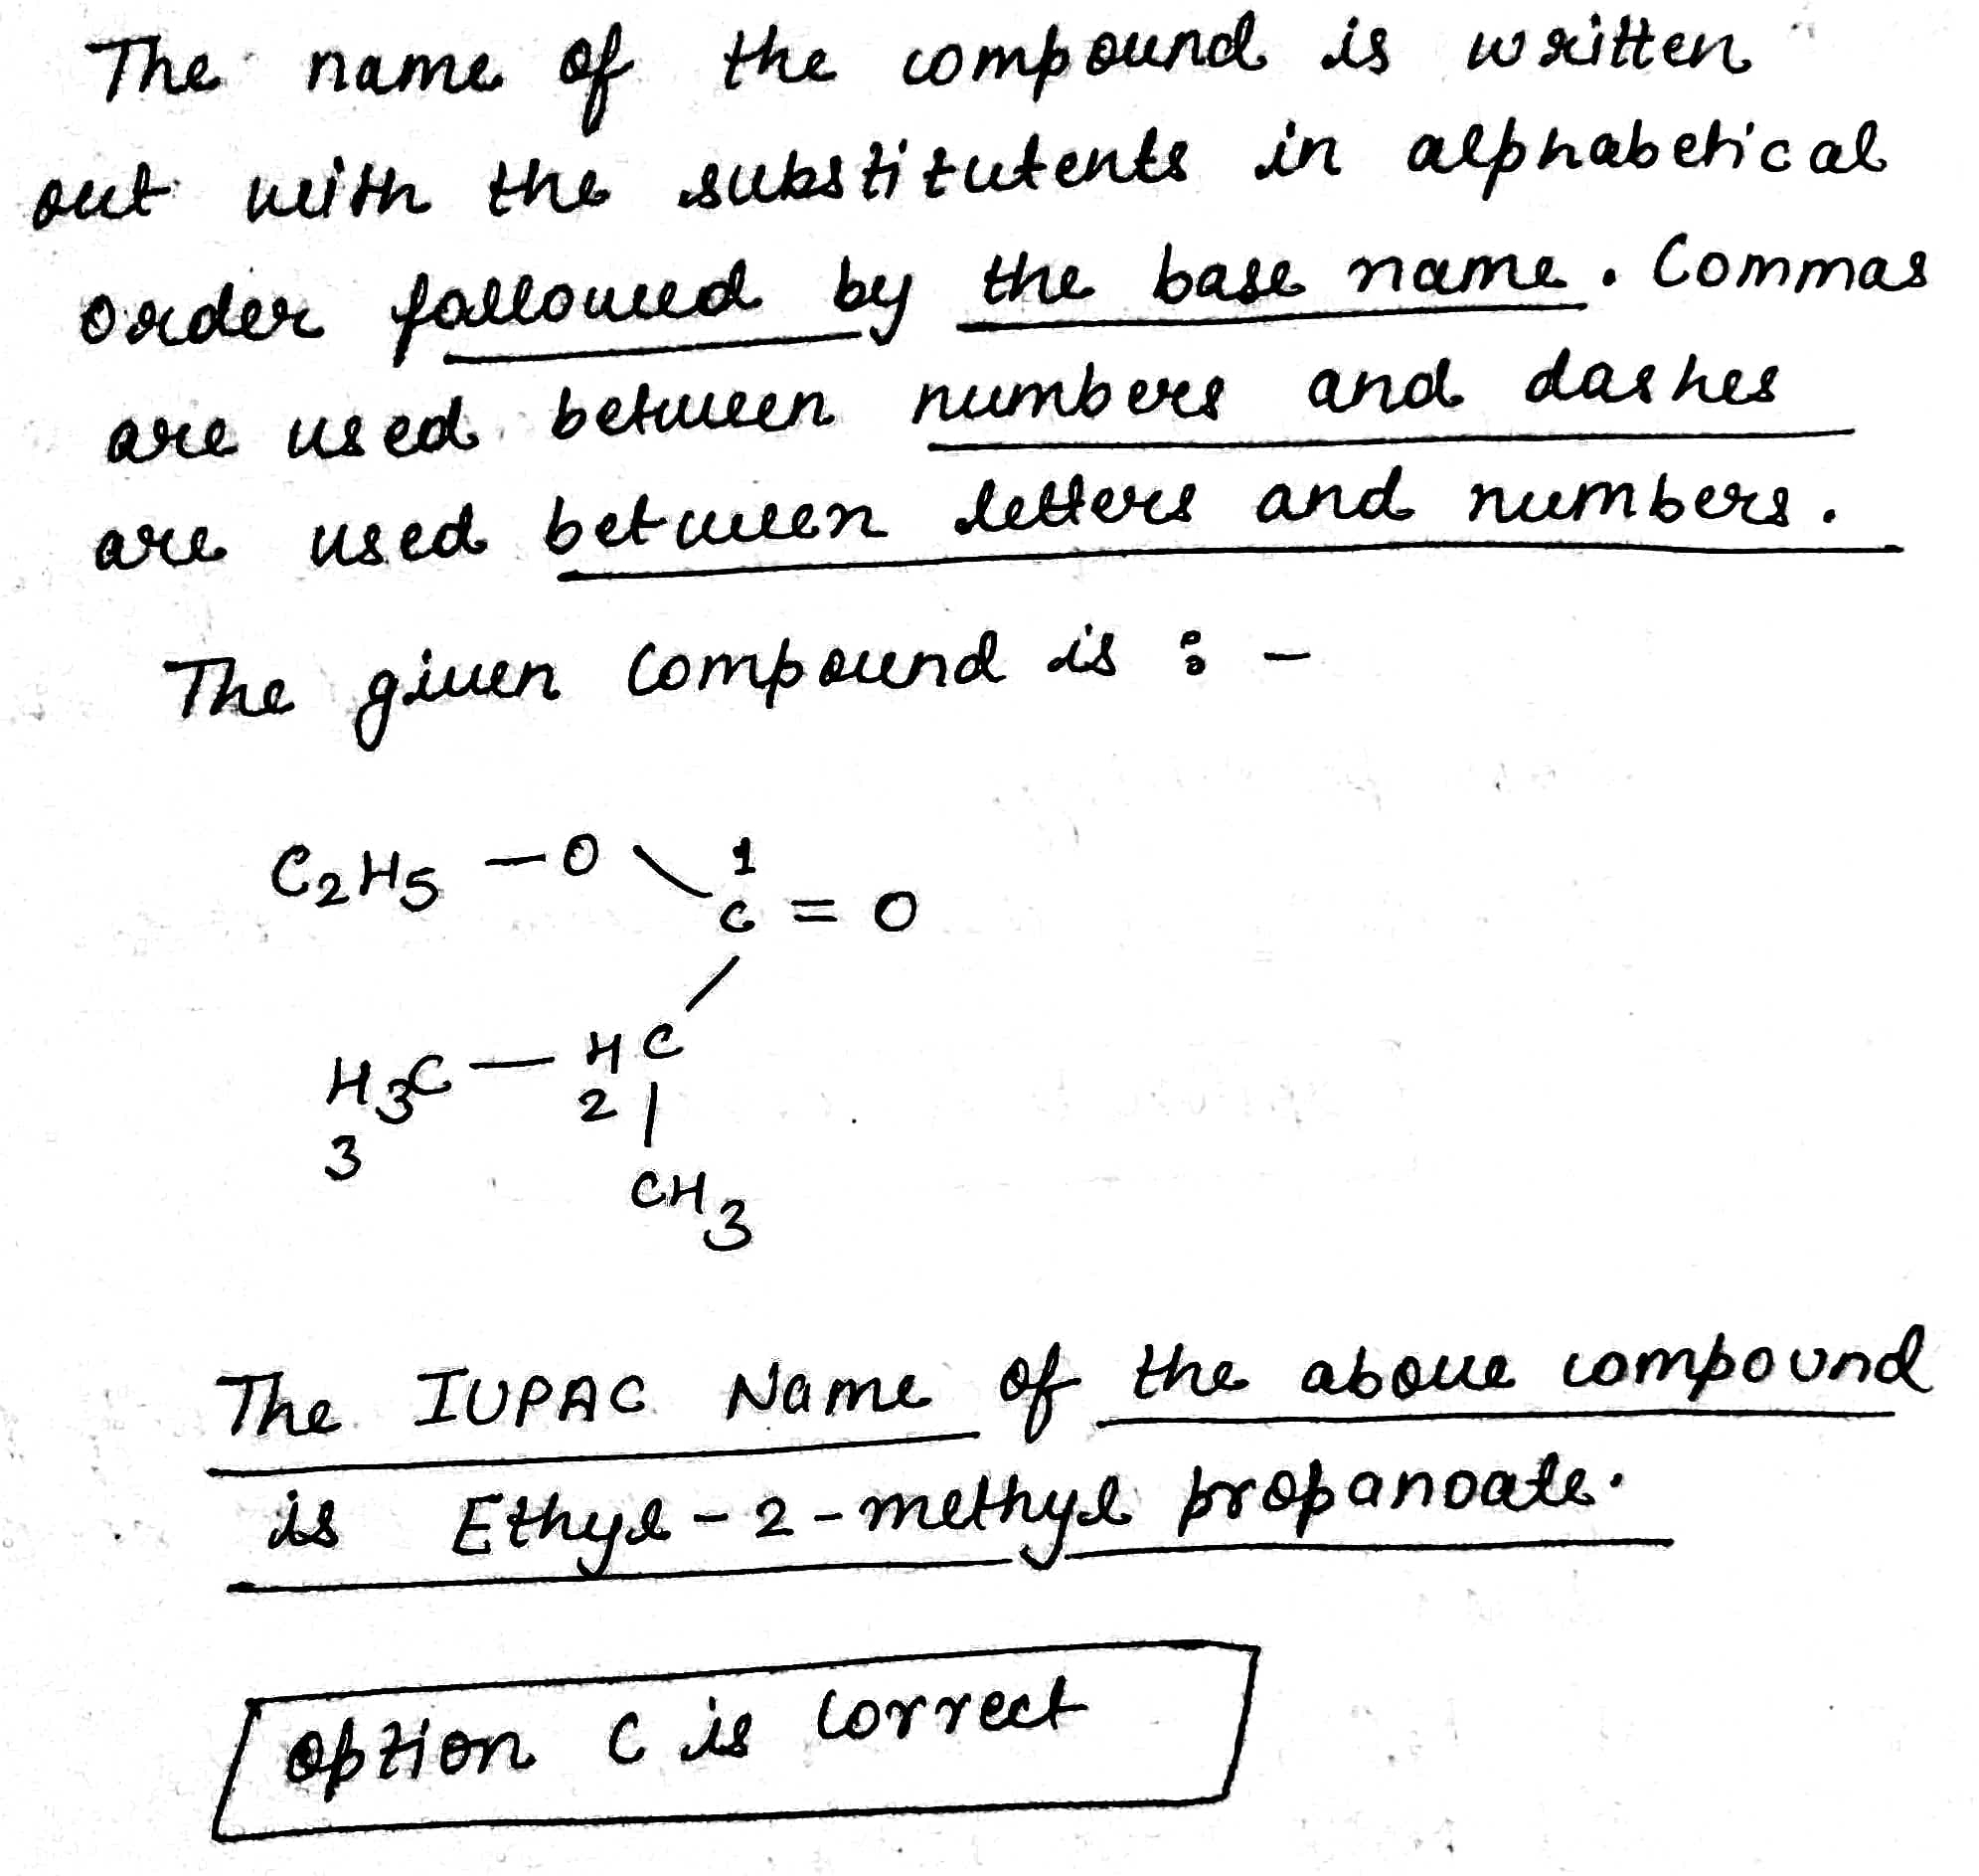 The name of the compound is written
out with the substitutents in alphabetical
order followed by the base name. Commas
are used between numbers and dashes
are used between letters and numbers.
The given compound is : -
C2H5 - O \ 1
C = O
/
H3C - HC
3 2 |
CH3
The IUPAC Name of the above compound
is Ethyl - 2 - methyl propanoate.
option C is correct